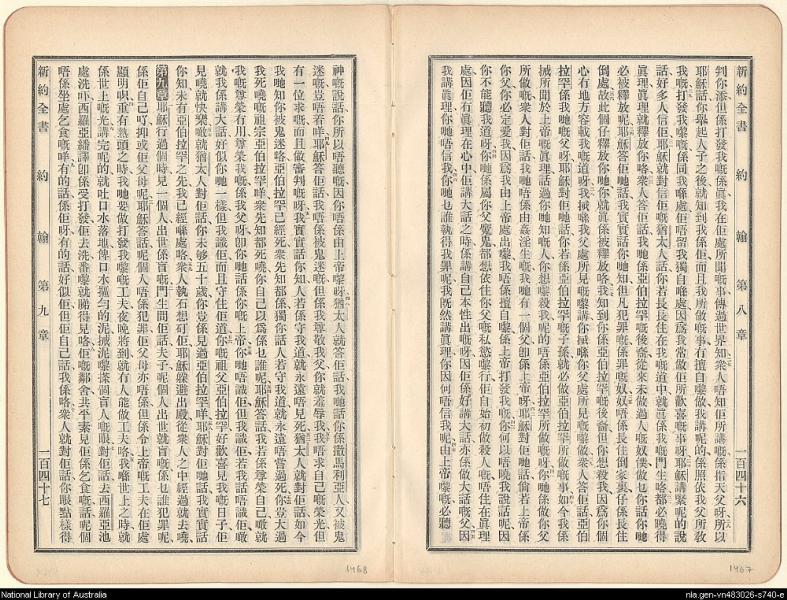 新約全書 約翰 第八章 一百四十六
判你添但係打發我嘅係眞我在佢處所聞嘅事傳過世界知衆人唔知佢所講嘅係指天父呀所以
耶穌話你舉起人子之後就知到我係佢而且我所做嘅事冇擅自做我講呢的係照依我父所敎
我嘅打發我嚟嘅係同我喺處佢唔留我獨自喺處因爲我常做佢所歡喜嘅事呀耶穌講緊呢的說
話好多人信佢耶穌就對信佢嘅猶太人話你若長長住在我嘅道中就眞係我嘅門生咯都必曉得
眞理眞理就釋放你咯衆人答佢話我哋係亞伯拉罕嘅後裔從來未做過人嘅奴僕做乜你話你哋
必被釋放呢耶穌答佢哋話我實實話你哋知但凡犯罪嘅係罪嘅奴奴唔係長住倒家裏仔係長住
倒處故此個仔釋放你哋你就眞係被釋放咯我知到你係亞伯拉罕嘅後裔但你想殺我因爲你個
心冇地方容載我嘅道呀我搣喺我父處所見嘅嚟講你搣喺你父處所見嘅嚟做衆人答佢話亞伯
拉罕係我哋嘅父呀耶穌對佢哋話你若係亞伯拉罕嘅子孫就必做亞伯拉罕所做嘅事如今我係
搣所聞於上帝嘅眞理話過你哋知嘅人你想嚟殺我呢的唔係亞伯拉罕所做嘅呀你係做你父
所做嘅衆人對佢話我哋唔係由姦淫生嘅我哋有一個父卽係上帝呀耶穌對佢哋話倘若上帝係
你父你必定愛我因爲我由上帝處出嚟我唔係擅自嚟係上帝打發我嘅你何以唔曉我說話呢因
你不能聽我道呀你哋係屬你父魔鬼都想依住你父嘅私慾嚟行佢自始初做殺人嘅唔住在眞理
處因佢冇眞理在心中佢講大話之時係講自己本性出嘅呀因佢係好講大話亦係做大話嘅父因
我講眞理你哋唔信我你哋乜誰就得我罪呢我既然講眞理你因何唔信我呢由上帝嘅必聽講
1467
神嘅說話你所以唔聽嘅因你唔係由上帝嚟呀猶太人就答佢話我哋話你係撒馬利亞人又被鬼
迷嘅豈唔若咩耶穌答佢話我唔係被鬼迷嘅但係我尊敬我父你就羞辱我我唔求自己嘅榮光但
有一位求嘅而且做審判嘅呀我實實話你知人若係守我道就永遠唔見死猶太人就對佢話如今
我哋知你被鬼迷咯亞伯拉罕已經死衆先知都係獨你話人若守我道就永遠唔嘗過死你豈大過
我死嘅祖宗亞伯拉罕咩衆先知都死嘵你自己以爲係乜誰呢耶穌答話我若係尊榮自己噉就
我嘅尊榮冇用尊榮我嘅係我父呀卽你哋話係你嘅上帝你哋唔識佢但我識佢若我話唔識佢噉
就我係講大話好似你哋一樣但我識佢而且守住佢道你嘅祖父亞伯拉罕好歡喜見我嘅日子佢
見嘵就快樂噉就猶太人對佢話你未够五十歲你豈係見過亞伯拉罕咩耶穌對佢哋話我實實話
你知未有亞伯拉罕之先我已經喺處咯衆人執石想矴佢耶穌躱避出殿從衆人之中經過就去嘵
第九章 耶穌行過個時見一個人出世係盲嘅門生問佢話夫子呢個人出世就盲嘅係乜誰犯罪呢
係佢自己吖抑或佢父母呢耶穌答話呢個人唔係犯罪佢父母亦唔係但係令上帝嘅工夫在佢處
顯明呮重有熱頭之時我哋要做打發我嚟嘅工夫夜晚將到就冇人能做工夫咯我喺世上之時就
係世上嘅光講完呢的就吐口水落地俾口水搵勻的泥搣泥嚟搽個盲人嘅眼對佢話去西羅亞池
處洗呮西羅亞繙譯卽係受打發佢去洗番嚟就睇得見咯佢嘅鄰舍共平素見佢係乞食嘅話呢個
唔係坐處乞食嘅咩有的話係佢呀有的話好似佢但佢自己話我係咯衆人就對佢話你眼點樣得
新約全書 約翰 第九章 一百四十七
1468
National Library of Australia
nla.gen-vn483026-s740-e